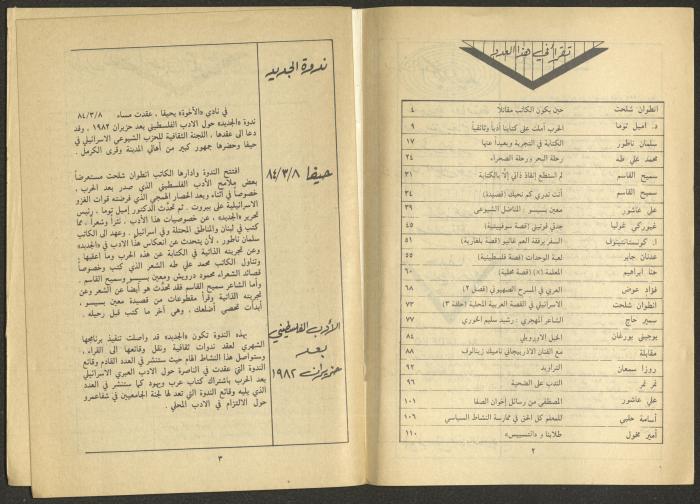 تقرأ في هذا العدد
انطوان شلحت حين يكون الكاتب مقاتلا ٤
د. اميل توما الحرب أملت على كتابنا أدباً وثائقياً ٩
سلمان ناطور الكتابة في التجربة وبعيدا عنها ١٧
محمد علي طه رحلة البحر ورحلة الصحراء ٢٤
سميح القاسم لم استطع إنقاذ ذاتي إلّا بالكتابة ٣١
سميح القاسم أنت تدري كم نحبك (قصيدة) ٣٤
علي عاشور معين بسيسو : المناضل الشيوعي ٣٩
غيورغي غوليا جدتي فوتيني (قصة سوفييتية) ٤٥
أ. كونستانتينوف السفر برفقة العم غانيو (قصة بلغارية) ٥١
عدنان جابر لعبة الوحدات (قصة فلسطينية) ٥٥
حنا ابراهيم المعلمة (×) (قصة محلية) ٦٠
فؤاد عوض العربي في المسرح الصهيوني (فصل ٢) ٦٨
انطوان شلحت الاسرائيلي في القصة العربية المحلية (حلقة ٣) ٧٣
سمير حاج الشاعر المهجري : رشيد سليم الخوري ٧٧
يوجيني بورغان الجيل الاورويلي ٨٤
مقابلة مع الفنان الاذربيجاني تاميك زينالوف ٨٨
روزا سمعان التراويد ٩٢
نمر نمر الندب على الضحية ٩٦
علي عاشور المصطفى من رسائل إخوان الصفا ١٠١
أسامة حلبي للمعلم كل الحق في ممارسة النشاط السياسي ١٠٦
أمير مخول طلابنا و «التسييس» ١١٠
٢
ندوة الجديد
حيفا ٨/٣/٨٤
الأدب الفلسطيني
بعد
حزيران ١٩٨٢
في نادي «الأخوة» بحيفا ، عقدت مساء ٨٤/٣/٨
ندوة «الجديد» حول الادب الفلسطيني بعد حزيران ١٩٨٢ ، وقد
دعا الى عقدها ، اللجنة الثقافية للحزب الشيوعي الاسرائيلي في
حيفا وحضرها جمهور كبير من أهالي المدينة وقرى الكرمل .
افتتح الندوة وادارها الكاتب انطوان شلحت مستعرضاً
بعض ملامح الأدب الفلسطيني الذي صدر بعد الحرب ،
خصوصاً في أثناء وبعد الحصار الهمجي الذي فرضته قوات الغزو
الاسرائيلية على بيروت . ثم تحدّث الدكتور إميل توما ، رئيس
تحرير «الجديد» ، عن خصوصيات هذا الأدب ، نثراً وشعراً ، مما
كتب في لبنان والمناطق المحتلة وفي اسرائيل . وعهد الى الكاتب
سلمان ناطور ، لأن يتحدث عن انعكاس هذا الادب في «الجديد»
وعن تجربته الذاتية في الكتابة عن هذه الحرب وما أعقبها .
وتناول الكاتب محمد علي طه الشعر الذي كتب وخصوصاً
قصائد الشعراء محمود درويش ومعين بسيسو وسميح القاسم .
وأما الشاعر سميح القاسم فقد تحدّث هو أيضاً عن الشعر وعن
تجربته الذاتية وقرأ مقطوعات من قصيدة معين بسيسو ،
أبدأت تحصي أضلعك ، وهي آخر ما كتب قبل رحيله .
بهذه الندوة تكون «الجديد» قد واصلت تنفيذ برنامجها
الشهري لعقد ندوات ثقافية ونقل وقائعها الى القراء ،
وستواصل هذا النشاط الهام حيث ستنشر في العدد القادم وقائع
الندوة التي عقدت في الناصرة حول الادب العبري الاسرائيلي
بعد الحرب باشتراك كتاب عرب ويهود كما ستنشر في العدد
الذي يليه وقائع الندوة التي تعد لها لجنة الجامعيين في شفاعمرو
حول الالتزام في الادب المحلي .
٣